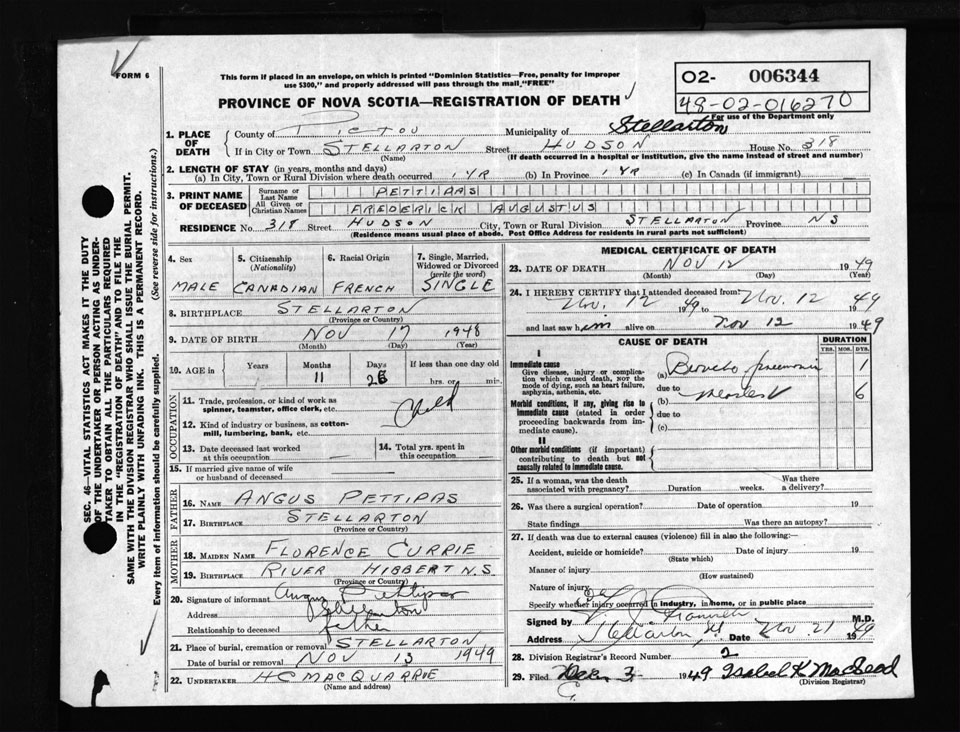 FORM 6
This form if placed in an envelope, on which is printed "Dominion Statistics—Free, penalty for improper
use $300," and properly addressed will pass through the mail "FREE"
PROVINCE OF NOVA SCOTIA—REGISTRATION OF DEATH
O2- 006344
48-02-016270
For use of the Department only
1. PLACE OF DEATH
County of PICTOU Municipality of Stellarton
If in City or Town STELLARTON Street HUDSON House No. 318
(Name) (If death occurred in a hospital or institution, give the name instead of street and number)
2. LENGTH OF STAY (in years, months and days)
(a) In City, Town or Rural Division where death occurred 1 YR (b) In Province 1 YR (c) In Canada (if immigrant)
3. PRINT NAME OF DECEASED
Surname or Last Name PETTIPAS
All Given or Christian Names FREDERICK AUGUSTUS
RESIDENCE No. 318 Street HUDSON City, Town or Rural Division STELLARTON Province NS
(Residence means usual place of abode. Post Office Address for residents in rural parts not sufficient)
4. Sex 5. Citizenship (Nationality) 6. Racial Origin 7. Single, Married, Widowed or Divorced (write the word)
MALE CANADIAN FRENCH SINGLE
8. BIRTHPLACE STELLARTON
(Province or Country)
9. DATE OF BIRTH NOV 17 1948
(Month) (Day) (Year)
10. AGE in Years Months Days If less than one day old
11 26 hrs. or min.
OCCUPATION
11. Trade, profession, or kind of work as
spinner, teamster, office clerk, etc. Child
12. Kind of industry or business, as cotton-
mill, lumbering, bank, etc.
13. Date deceased last worked at this occupation 14. Total yrs. spent in this occupation
15. If married give name of wife
or husband of deceased
FATHER
16. NAME ANGUS PETTIPAS
17. BIRTHPLACE STELLARTON
(Province or Country)
MOTHER
18. MAIDEN NAME FLORENCE CURRIE
19. BIRTHPLACE RIVER HIBBERT N.S.
(Province or Country)
20. Signature of informant Angus Pettipas
Address Stellarton
Relationship to deceased father
21. Place of burial, cremation or removal STELLARTON
Date of burial or removal NOV 13 1949
22. UNDERTAKER HC MACQUARRIE
(Name and address)
MEDICAL CERTIFICATE OF DEATH
23. DATE OF DEATH NOV 12 1949
(Month) (Day) (Year)
24. I HEREBY CERTIFY that I attended deceased from
Nov. 12 1949 to Nov. 12 1949
and last saw him alive on Nov 12 1949
CAUSE OF DEATH DURATION
YRS. MOS. DYS.
I
Immediate cause
Give disease, injury or complica-
tion which caused death, not the
mode of dying, such as heart failure,
asphyxia, asthenia, etc.
(a) Broncho pneumonia 1
due to
Morbid conditions, if any, giving rise to
immediate cause (stated in order
proceeding backwards from im-
mediate cause).
(b) Measles 6
due to
(c)
II
Other morbid conditions (if important)
contributing to death but not
causally related to immediate cause.
25. If a woman, was the death
associated with pregnancy? Duration weeks. Was there a delivery?
26. Was there a surgical operation? Date of operation 19
State findings Was there an autopsy?
27. If death was due to external causes (violence) fill in also the following:—
Accident, suicide or homicide? Date of injury 19
(State which)
Manner of injury
(How sustained)
Nature of injury
Specify whether injury occurred in industry, in home, or in public place
Signed by M.D.
Address Stellarton Date Nov. 21 1949
28. Division Registrar's Record Number 2
29. Filed 3 1949 Isabel K MacLeod
(Division Registrar)
SEC. 46—VITAL STATISTICS ACT MAKES IT THE DUTY
OF THE UNDERTAKER OR PERSON ACTING AS UNDER-
TAKER TO OBTAIN ALL THE PARTICULARS REQUIRED
IN THE "REGISTRATION OF DEATH" AND TO FILE THE
SAME WITH THE DIVISION REGISTRAR WHO SHALL ISSUE THE BURIAL PERMIT.
WRITE PLAINLY WITH UNFADING INK. THIS IS A PERMANENT RECORD.
Every item of information should be carefully supplied. (See reverse side for instructions.)